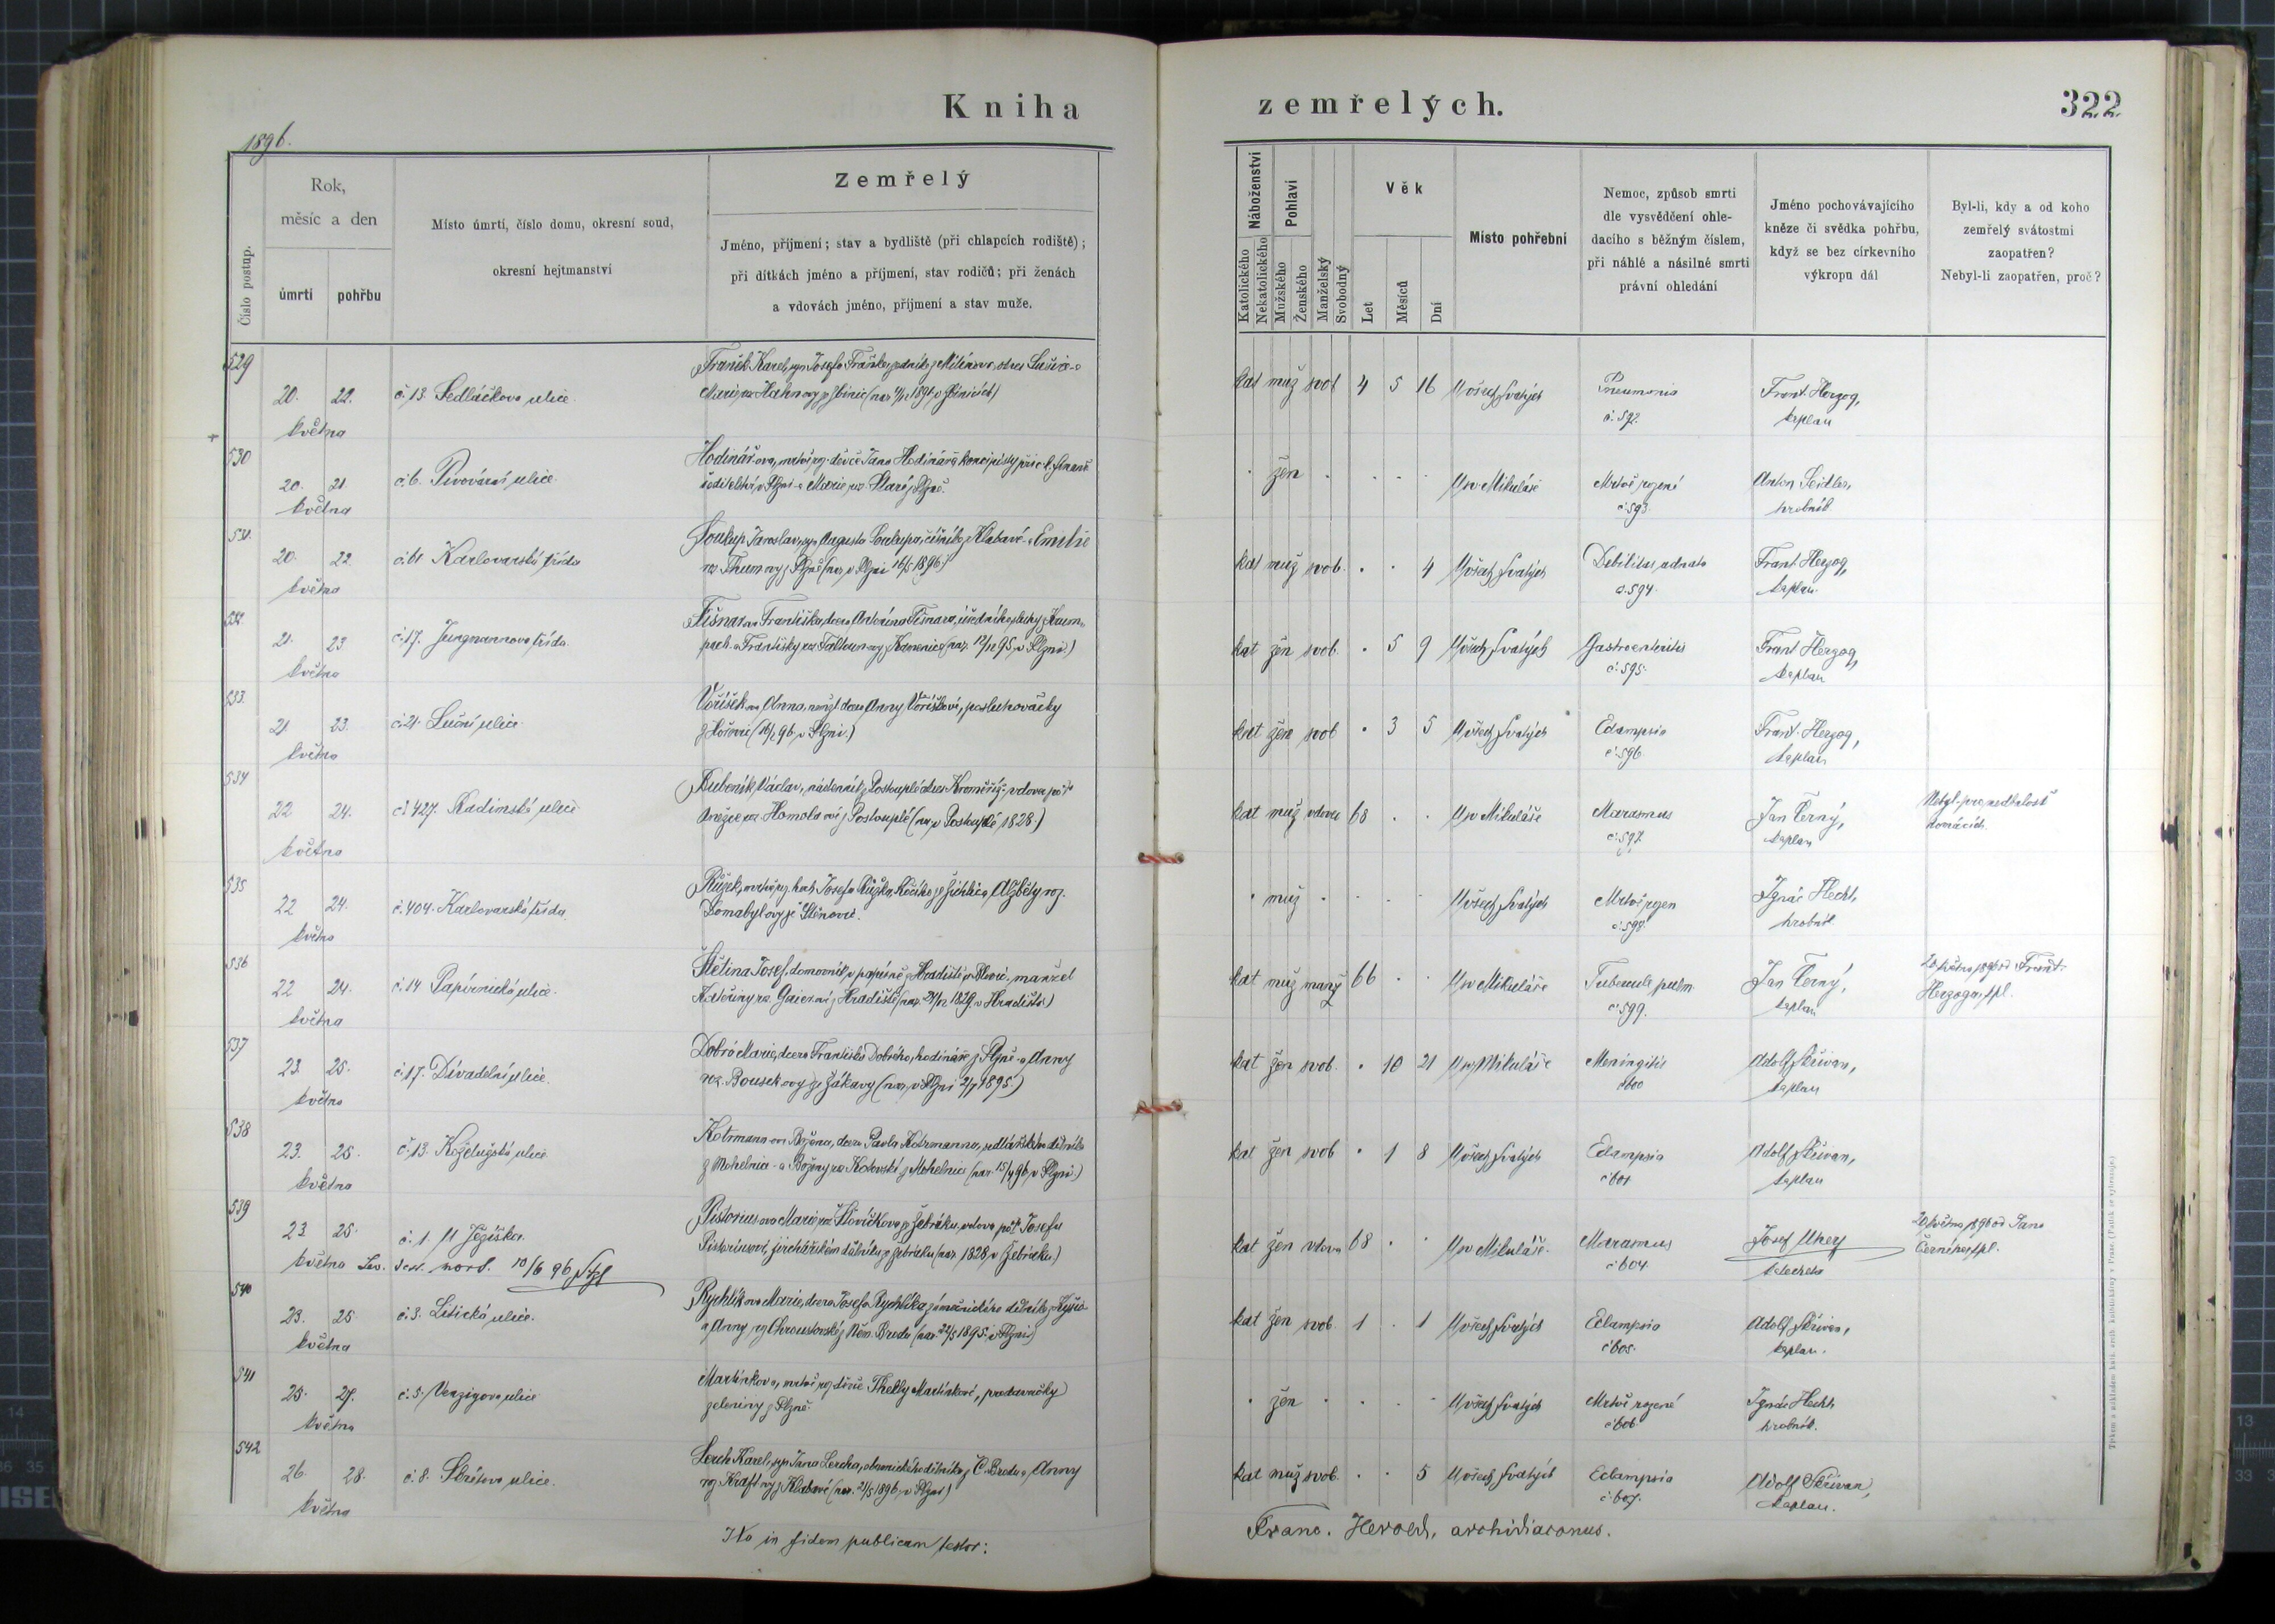 Kniha
zemřelých.
322
1896.
Číslo postup.
Rok,
měsíc a den
úmrtí
pohřbu
Místo úmrtí, číslo domu, okresní soud,
okresní hejtmanství
Zemřelý
Jméno, příjmení; stav a bydliště (při chlapcích rodiště);
při dítkách jméno a příjmení, stav rodičů; při ženách
a vdovách jméno, příjmení a stav muže.
Náboženství
Katolického
Nekatolického
Pohlaví
Mužského
Ženského
Manželský
Svobodný
Věk
Let
Měsíců
Dní
Místo pohřební
Nemoc, způsob smrti
dle vysvědčení ohle-
dacího s běžným číslem,
při náhlé a násilné smrti
právní ohledání
Jméno pochovávajícího
kněze či svědka pohřbu,
když se bez církevního
výkropu dál
Byl-li, kdy a od koho
zemřelý svátostmi
zaopatřen?
Nebyl-li zaopatřen, proč?
529
20. 22. č. 13. Sedláčkova ulice.
května
Franěk Karel, syn Josefa
Marie
kat muž svob 4 5 16 U všech Svatých Pneumonia Frant. Herzog,
č. 592. kaplan
530
20. 21 č. 6. Pivovární ulice.
května
Hodinářova, mrtvě roz. děvče Jana Hodináře koncipisty při c. k. finanč
ředitelství v Plzni a Marie roz. Staré z Plzně.
žen U sv Mikuláše Mrtvě rozené Anton Seidler,
č. 593. hrobník
531.
20. 22. č. 61 Karlovarská třída
května
Soukup Jaroslav, syn Augusta Soukupa, číšníka z Klabavé a Emilie
roz Thumovy z Plzně (nar. v Plzni 16/5 1896.)
kat muž svob. 4 U všech Svatých Debilitas adnata Frant Herzog,
č. 594. kaplan.
532
21. 23 č. 17. Jungmannova třída.
května
Tišnarova Františka, dcera Antonína Tišnara,
a Františky roz z Kamenice (nar. 12/12 95, v Plzni.)
kat žen svob. 5 9 U všech Svatých Gastroenteritis Frant Herzog,
č. 595. kaplan
533.
21 23. č. 21. Luční ulice.
května
Voříškova Anna, nemžl dcera Anny Voříškové, posluhovačky
z Hořovic (16/2 96 v Plzni.)
kat žen svob 3 5 U všech Svatých Eclampsia Frant. Herzog,
č. 596 kaplan
534
22 24. č. 427. Skadimská ulice
května
Kubeník Václav, nádenník z Postouplé, vdovec po
Anežce roz. Homolové z Postouplé (nar. v Postouplé 1828.)
kat muž vdovec 68 U sv Mikuláše Marasmus Jan Černý,
č. 597. kaplan
Nebyl pro nedbalost
domácích.
535
22 24. č. 404. Karlovarská třída.
května
Růžek, mrtvě roz. hoch Josefa Růžka, kočího ze Žichlic a Alžběty roz.
Domabylovy ze Stěnovic.
muž U všech Svatých Mrtvě rozen Ignác Hecht,
č. 598. hrobník
536
22 24. č. 14 Papírnická ulice.
května
Štětina Josef, domovník v papírně z Hradiště, manžel
Kateřiny roz. Gaierové z Hradiště (nar. 24/12 1829 v Hradišti)
kat muž manž 66 U sv Mikuláše Tubercule pulm. Jan Černý,
č. 599. kaplan
20 května 1896 od Frant.
Herzoga, kpl.
537
23. 25. č. 17. Divadelní ulice.
května
Dobrá Marie, dcera Františka Dobrého, hodináře z Plzně a Anny
roz. Bouškovy ze Žákavy (nar. v Plzni 2/7 1895.)
kat žen svob. 10 21 U sv Mikuláše Meningitis Adolf Skřivan,
č 600 kaplan
538
23. 25. č. 13. Koželužská ulice
května
Kotrmannova Božena, dcera Pavla Kotrmanna, sedlářského dělníka
z Mohelnice a Boženy roz Kotovské z Mohelnice (nar. 15/4 96, v Plzni.)
kat žen svob 1 8 U všech Svatých Eclampsia Adolf Skřivan,
č 601 kaplan
539
23 25. č. 1. U Ježíška.
května 10/6 96
Pistoriusova Marie, roz. ze Žebráku, vdova po Josefu
Pistoriusovi, jirchářském dělníku z Žebráku (nar. 1828, v Žebráku.)
kat žen vdova 68 U sv Mikuláše. Marasmus Josef Uherz
č 604 katecheta
20 května 1896 od Jana
Černého, kpl.
540
23. 25 č. 3. Letická ulice.
května
Rychlíkova Marie, dcera Josefa Rychlíka, zámečnického dělníka
a Anny roz Chroustovské z Něm. Brodu (nar. 22/5 1895, v Plzni)
kat žen svob. 1 1 U všech Svatých Eclampsia Adolf Skřivan,
č 605. kaplan.
541
25. 27. č. 5. Venzigova ulice
května
Martínkova, mrtvě roz děvče Thekly Martínkové, prodavačky
zeleniny z Plzně.
žen U všech Svatých Mrtvě rozené Ignác Hecht,
č 606 hrobník.
542
26. 28. č. 8. Skrétova ulice.
května
Lerch Karel, syn Jana Lercha, dělníka z Č. Brodu a Anny
roz Kraftovy z Klabavé (nar. 21/5 1896, v Plzni)
kat muž svob. 5 U všech Svatých Eclampsia Adolf Skřivan,
č. 607. kaplan.
Ita in fidem publicam testor:
Franc. Herold, archidiaconus.